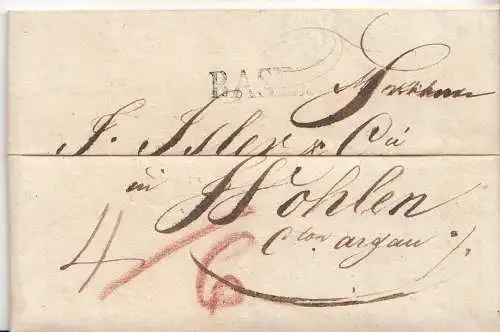 BASEL
J. Isler & Cie
in Wohlen
C^ton argau
4/6